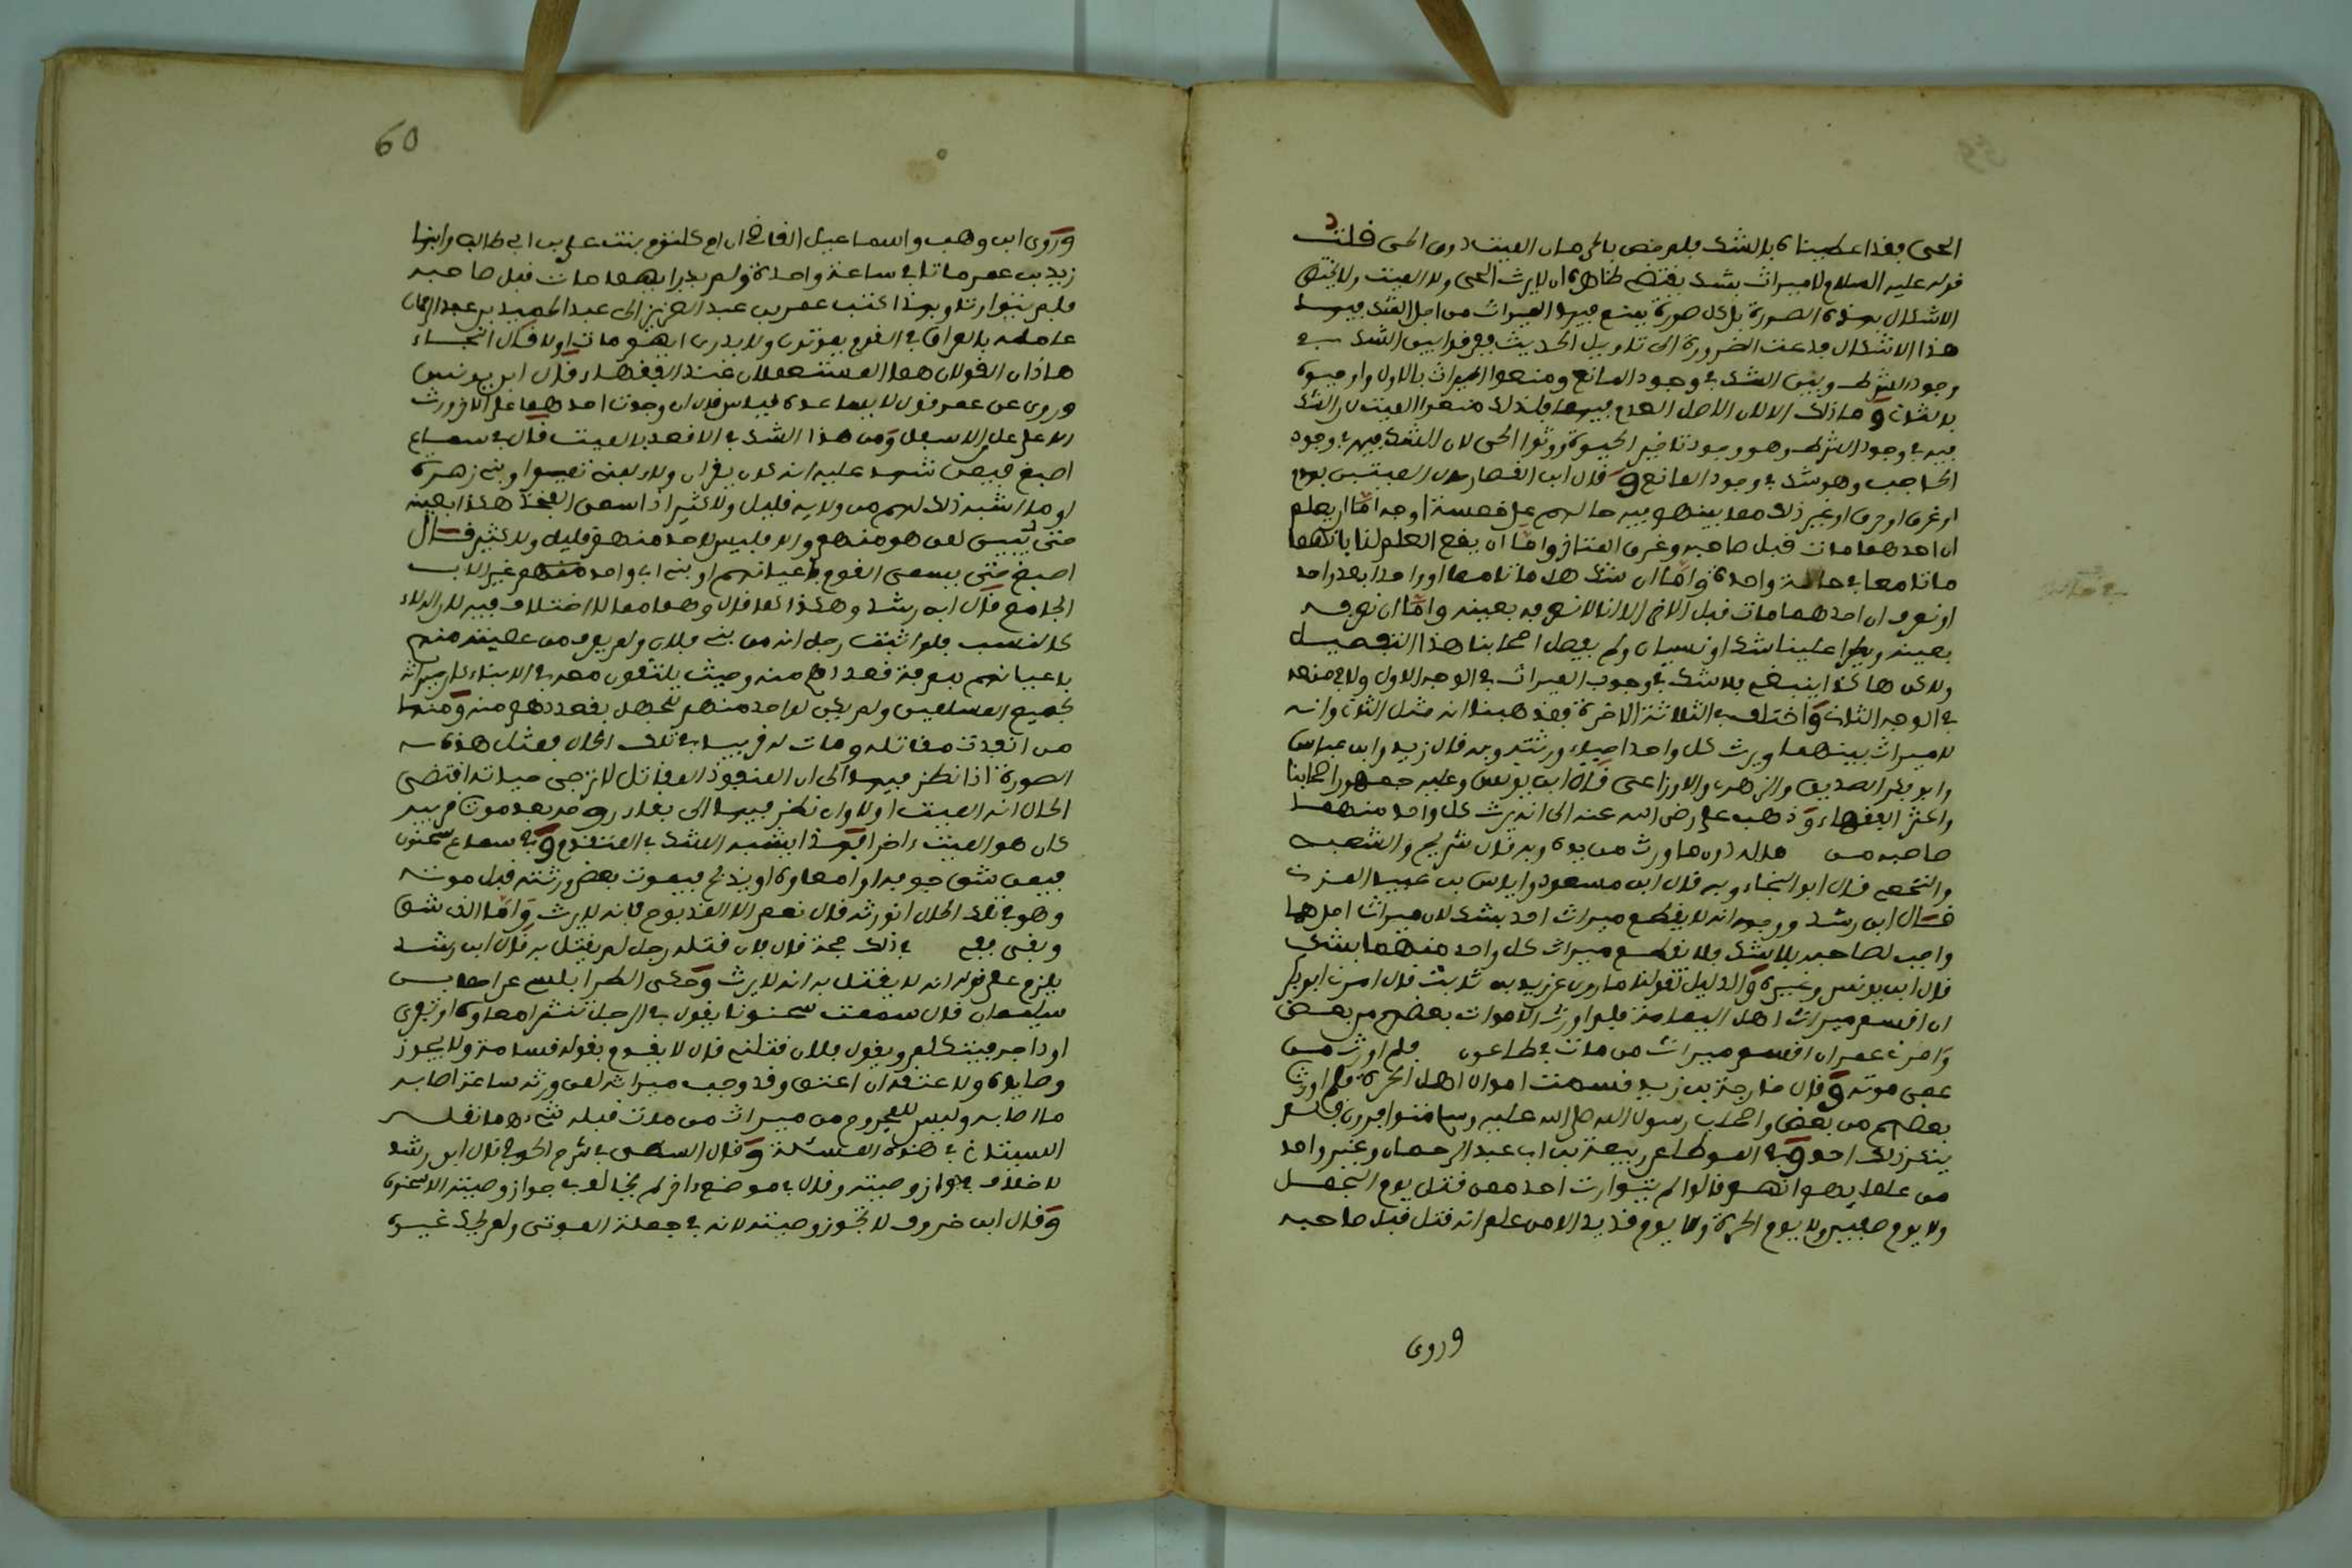 الحي فقد اعطيناه بالشك فلم خص بالحرمان الميت دون الحي فلت
قوله عليه السلام لا ميراث بشك يقتضي ظاهره ان لا يرث الحي ولا الميت ولا يختص
الاشكال بهذه الصورة بل كل صورة يمنع فيها الميراث من اجل الشك فيها
هذا الاشكال فدعت الضرورة الى تاويل الحديث ففرقوا بين الشك في
وجود الشرط وبين الشك في وجود المانع ومنعوا الميراث بالاول واوجبوه
بالثاني وما ذلك الا لان الاصل العدم فيهما فلذلك منعوا الميت لان الشك
فيه في وجود الشرط وهو وجود تاخير الحيوة وورثوا الحي لان الشك فيه في وجود
الحاجب وهو شك في وجود المانع وقال ابن القصار الميتين بهدم
او غرق او حرق او غير ذلك مما بينهما فيه حالهم على خمسة اوجه اما ان يعلم
ان احدهما مات قبل صاحبه وعرف المتاخر واما ان يقع العلم لنا بانهما
ماتا معا في حالة واحدة واما ان شك هل ماتا معا او واحدا بعد واحد
او نعرف ان احدهما مات قبل الاخر الا انا لا نعرفه بعينه واما ان نعرفه
بعينه ويطرا علينا شك او نسيان ولم يفصل اصحابنا هذا التفصيل
ولكن هاكذا ينبغي فلا شك في وجوب الميراث في الوجه الاول ولا في منعه
في الوجه الثاني واختلف في الثلاثة الاخرة فمذهبنا انه مثل الثاني وانه
لا ميراث بينهما ويرث كل واحد احياء ورثته وبه قال زيد وابن عباس
وابو بكر الصديق والزهري والاوزاعي قال ابن يونس وعليه جمهور اصحابنا
واكثر الفقهاء وذهب علي رضي الله عنه الى انه يرث كل واحد منهما
صاحبه من ماله دون ما ورث من يده وبه قال شريح والشعبي
والنخعي قال ابو النجاء وبه قال ابن مسعود واياس بن عبيد المزني
قال ابن رشد ووجهه انه لا يقطع ميراث احد بشك لان ميراث احدهما
واجب لصاحبه بلا شك فلا نقطع ميراث كل واحد منهما بشك
قال ابن يونس وغيره والدليل لقولنا ما روي عن زيد بن ثابت قال امرني ابو بكر
ان اقسم ميراث اهل اليمامة فلم اورث الاموات بعضهم من بعض
وامرني عمر ان اقسم ميراث من مات في طاعون فلم اورث من
عمي موته وقال خارجة بن زيد قسمت اموال اهل الحرة فلم اورث
بعضهم من بعض واصحاب رسول الله صلى الله عليه وسلم متوافرون فلم
ينكر ذلك احد وفي الموطا عن ربيعة بن ابي عبد الرحمان وغير واحد
من علمايهم انهم قالوا لم يتوارث احد ممن قتل يوم الجمل
ولا يوم صفين ولا يوم الحرة ولا يوم قديد الا من علم انه قتل قبل صاحبه
وروى
60
وروى ابن وهب واسماعيل القاضي ان ام كلثوم بنت علي بن ابي طالب وابنها
زيد بن عمر ماتا في ساعة واحدة ولم يدر ايهما مات قبل صاحبه
فلم يتوارثا وبهذا كتب عمر بن عبد العزيز الى عبد الحميد بن عبد الرحمان
عامله بالعراق في القوم يموتون ولا يدرى ايهم مات اولا قال النجاء
هاذان القولان هما المستعملان عند الفقهاء قال ابن يونس
وروي عن عمر قول لا يساعده قياس قال ان وجدت احدهما على الاخر ورث
الاعلى على الاسفل ومن هذا الشك في الاقعد بالميت قال في سماع
اصبغ فيمن شهد عليه انه كان يقول ان ولاء لبني تميم او بني زهرة
او ما اشبه ذلك لهم من ولايه قليل ولا كثير اذا سمى الفخذ هكذا بعينه
حتى يتبين لمن هو منهم والا فليس لاحد منهم قليله ولا كثيره قال
اصبغ حتى يسمى القوم باعيانهم او بني اب واحد منهم غير الاب
الجامع قال ابن رشد وهكذا كما قال وهما مما لا اختلاف فيه لان الولاء
كالنسب فلو اثبت رجل انه من بني فلان ولم يعرف من عصبته منهم
باعيانهم بمعرفة قعددهم منه وحيث يلتقون معه في الابناء كان ميراثه
لجميع المسلمين ولم يكن لواحد منهم للجهل بقعددهم منه ومنها
من انفذت مقاتله ومات له قريب في تلك الحال فمثل هذه
الصورة اذا نظر فيها الى ان المنفوذ المقاتل لا ترجى حياته اقتضى
الحال انه الميت اولا وان نظر فيها الى بقاء روحه بعد موت قريبه
كان هو الميت اخرا فهذا يشبه الشك في المتقدم وفي سماع سحنون
فيمن شق جوفه او امعاوه او يذبح فيموت بعض ورثته قبل موته
وهو في تلك الحال اتورثه قال نعم الا المذبوح فانه لا يرث واما الذي شق
وبقي ففي ذلك حجة قال فان قتله رجل لم يقتل به قال ابن رشد
يلزم على قوله انه لا يقتل به انه لا يرث وحكى الطرابلسي عن احمد بن
سليمان قال سمعت سحنونا يقول في الرجل تنثر امعاوه او تفرى
اوداجه فيتكلم ويقول فلان قتلني قال لا يقدم بقوله قسامة ولا يجوز
وصاياه ولا عتقه ان اعتق وقد وجب ميراثه لمن ورثه ساعة اصابه
ما اصابه وليس للمجروح من ميراث من مات قبله شيء هما نقله
البستاني في هذه المسئلة وقال السطي في شرح الحوفي قال ابن رشد
لا خلاف في جواز وصيته وقال في موضع اخر لم يخالف في جواز وصيته الا سحنون
وقال ابن خروف لا تجوز وصيته لانه في جملة الموتى ولم يحك غيره